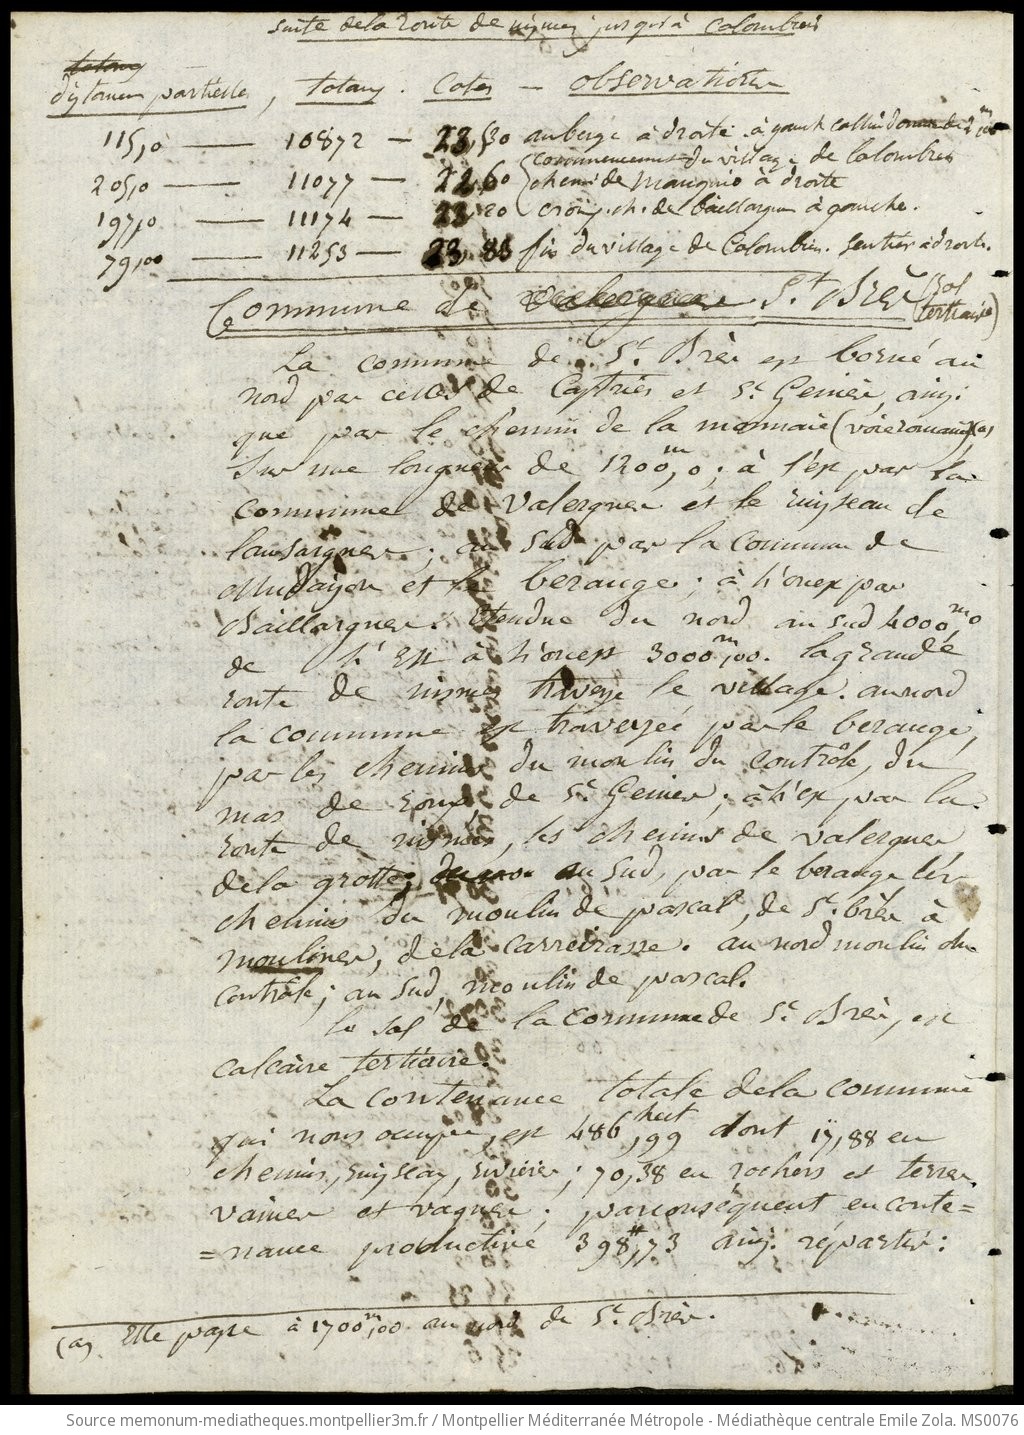 suite de la Route de nismes jusqu'à Colombiers
distances partielles, totaux. Cotes — observations
115,0 — 10872 — 23,50 auberge à droite. à gauche
commencement du village de Colombiers
205,0 — 11077 — 22,60 chemin de Mauguio à droite
197,0 — 11174 — 23,20 crois. ch. de Baillargues à gauche.
79,00 — 11253 — 23,85 fin du village de Colombiers. sentier à droite.
Commune de St Brès (sol tertiaire)
La commune de St Brès est bornée au
nord par celles de Castries et St Geniès, ainsi
que par le chemin de la monnaie (voie romaine)(a)
sur une longueur de 1200m,0; à l'est par la
commune de Valergues et le ruisseau de
lansargues; au sud par la Commune de
Mudaison et le berange; à l'ouest par
Baillargues. Etendue du nord au sud 4000m,0
de l'Est à l'ouest 3000m,00. la grande
route de nismes traverse le village. au nord
la commune est traversée par le berange,
par les chemins du moulin du contrôle, du
mas de roux, de St Geniès; à l'est par la
route de nismes, les chemins de valergues
de la grotte; au sud, par le berange les
chemins du moulin de pascal, de St brès à
moulines, de la Carreirasse. au nord moulin du
contrôle; au sud, moulin de pascal.
le sol de la commune de St Brès, est
calcaire tertiaire.
La contenance totale de la commune
qui nous occupe, est 486hect,99 dont 17,88 en
chemins, ruisseaux, rivières; 70,38 en rochers et terres
vaines et vagues; par conséquent en conte=
=nance productive 398H,73 ainsi répartis:
(a) Elle passe à 1700m,00 au nord de St Brès.